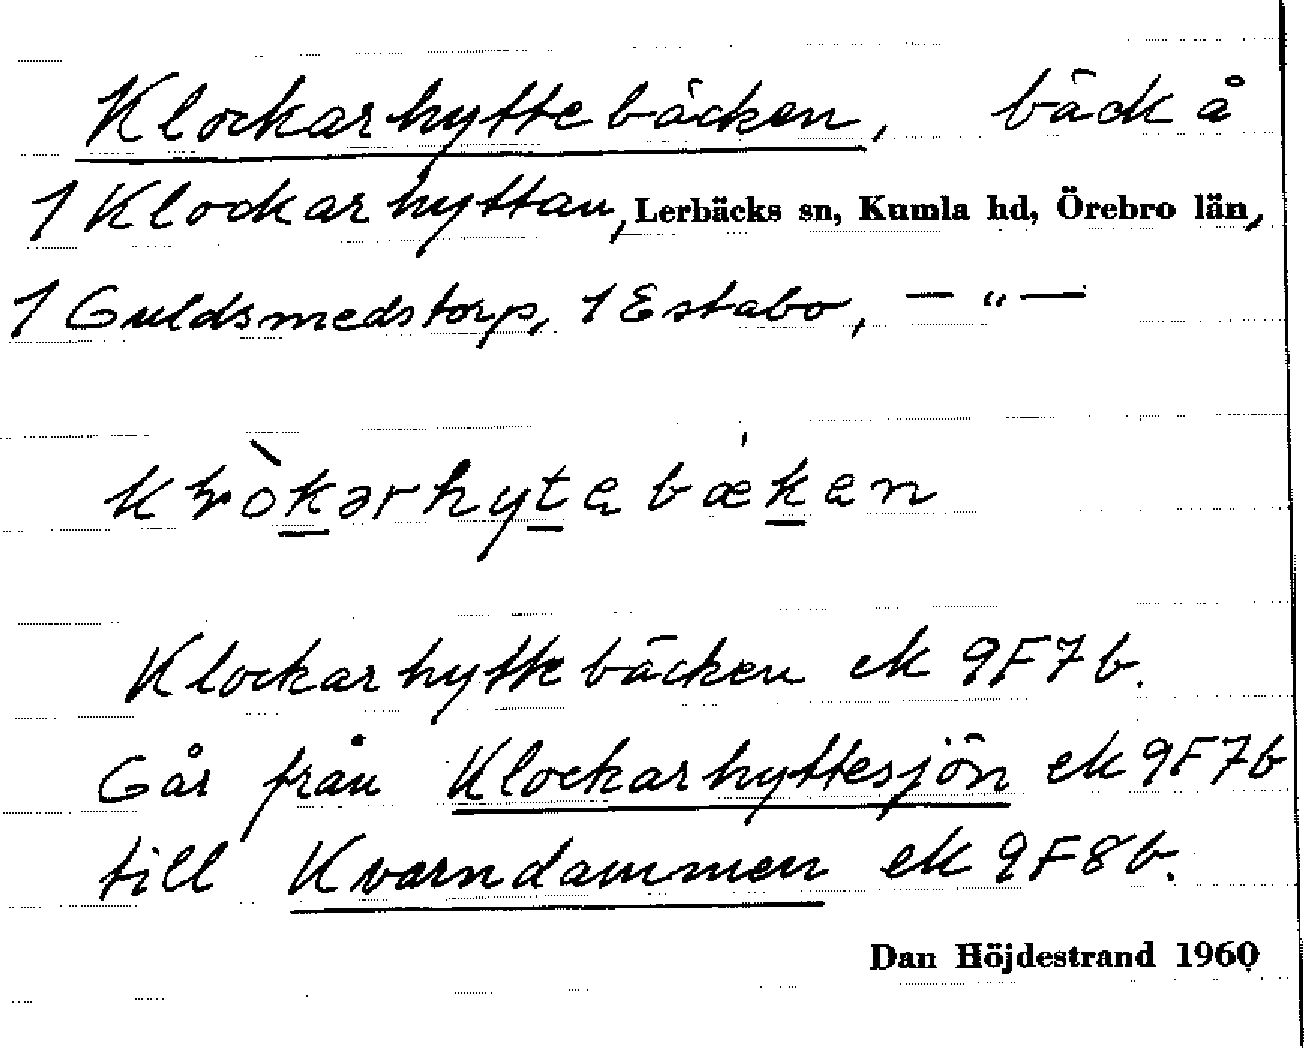 Klockarhyttebäcken, bäck å
1 Klockarhyttan, Lerbäcks sn, Kumla hd, Örebro län,
1 Guldsmedstorp, 1 Estabo, — " —
Klockarhyttebäcken ek 9F7b.
Går från Klockarhyttesjön ek 9F7b
till Kvarndammen ek 9F8b.
Dan Höjdestrand 1960